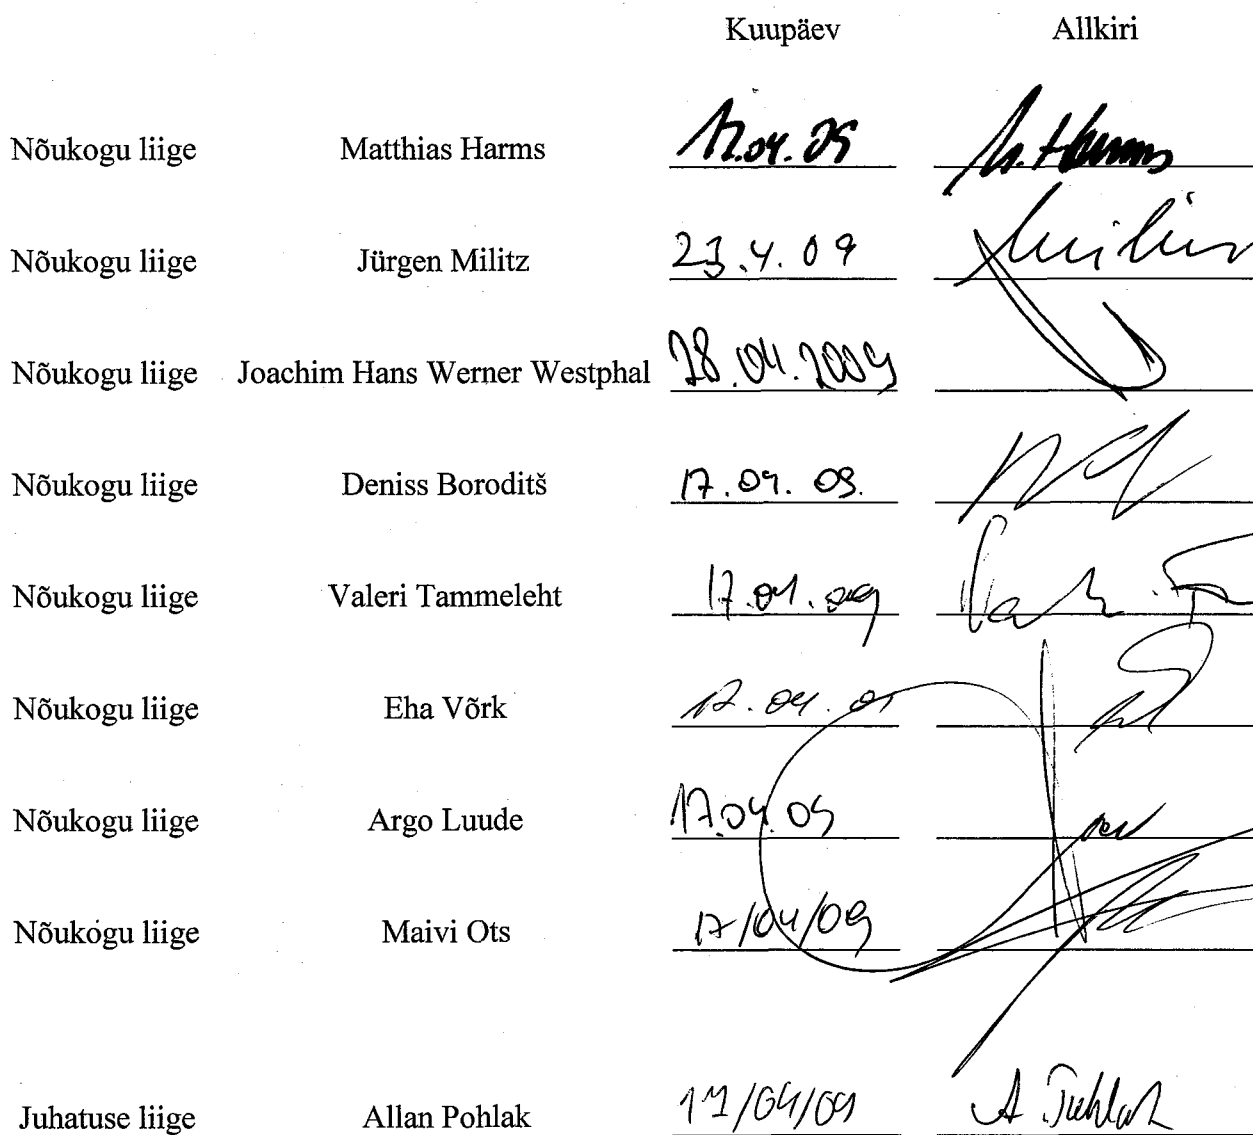 Kuupäev Allkiri
Nõukogu liige Matthias Harms 17.04.09 M. Harms
Nõukogu liige Jürgen Militz 23.4.09
Nõukogu liige Joachim Hans Werner Westphal 28.04.2009
Nõukogu liige Deniss Boroditš 17.04.09.
Nõukogu liige Valeri Tammeleht 17.04.09
Nõukogu liige Eha Võrk 17.04.09
Nõukogu liige Argo Luude 17.04.09
Nõukogu liige Maivi Ots 17/04/09
Juhatuse liige Allan Pohlak 17/04/09